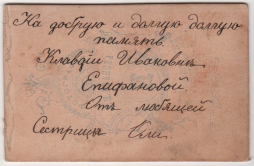 На добрую и долгую долгую
память
Клавдіи Ивановнѣ
Епифановой
Отъ любящей
Сестрицы Оли